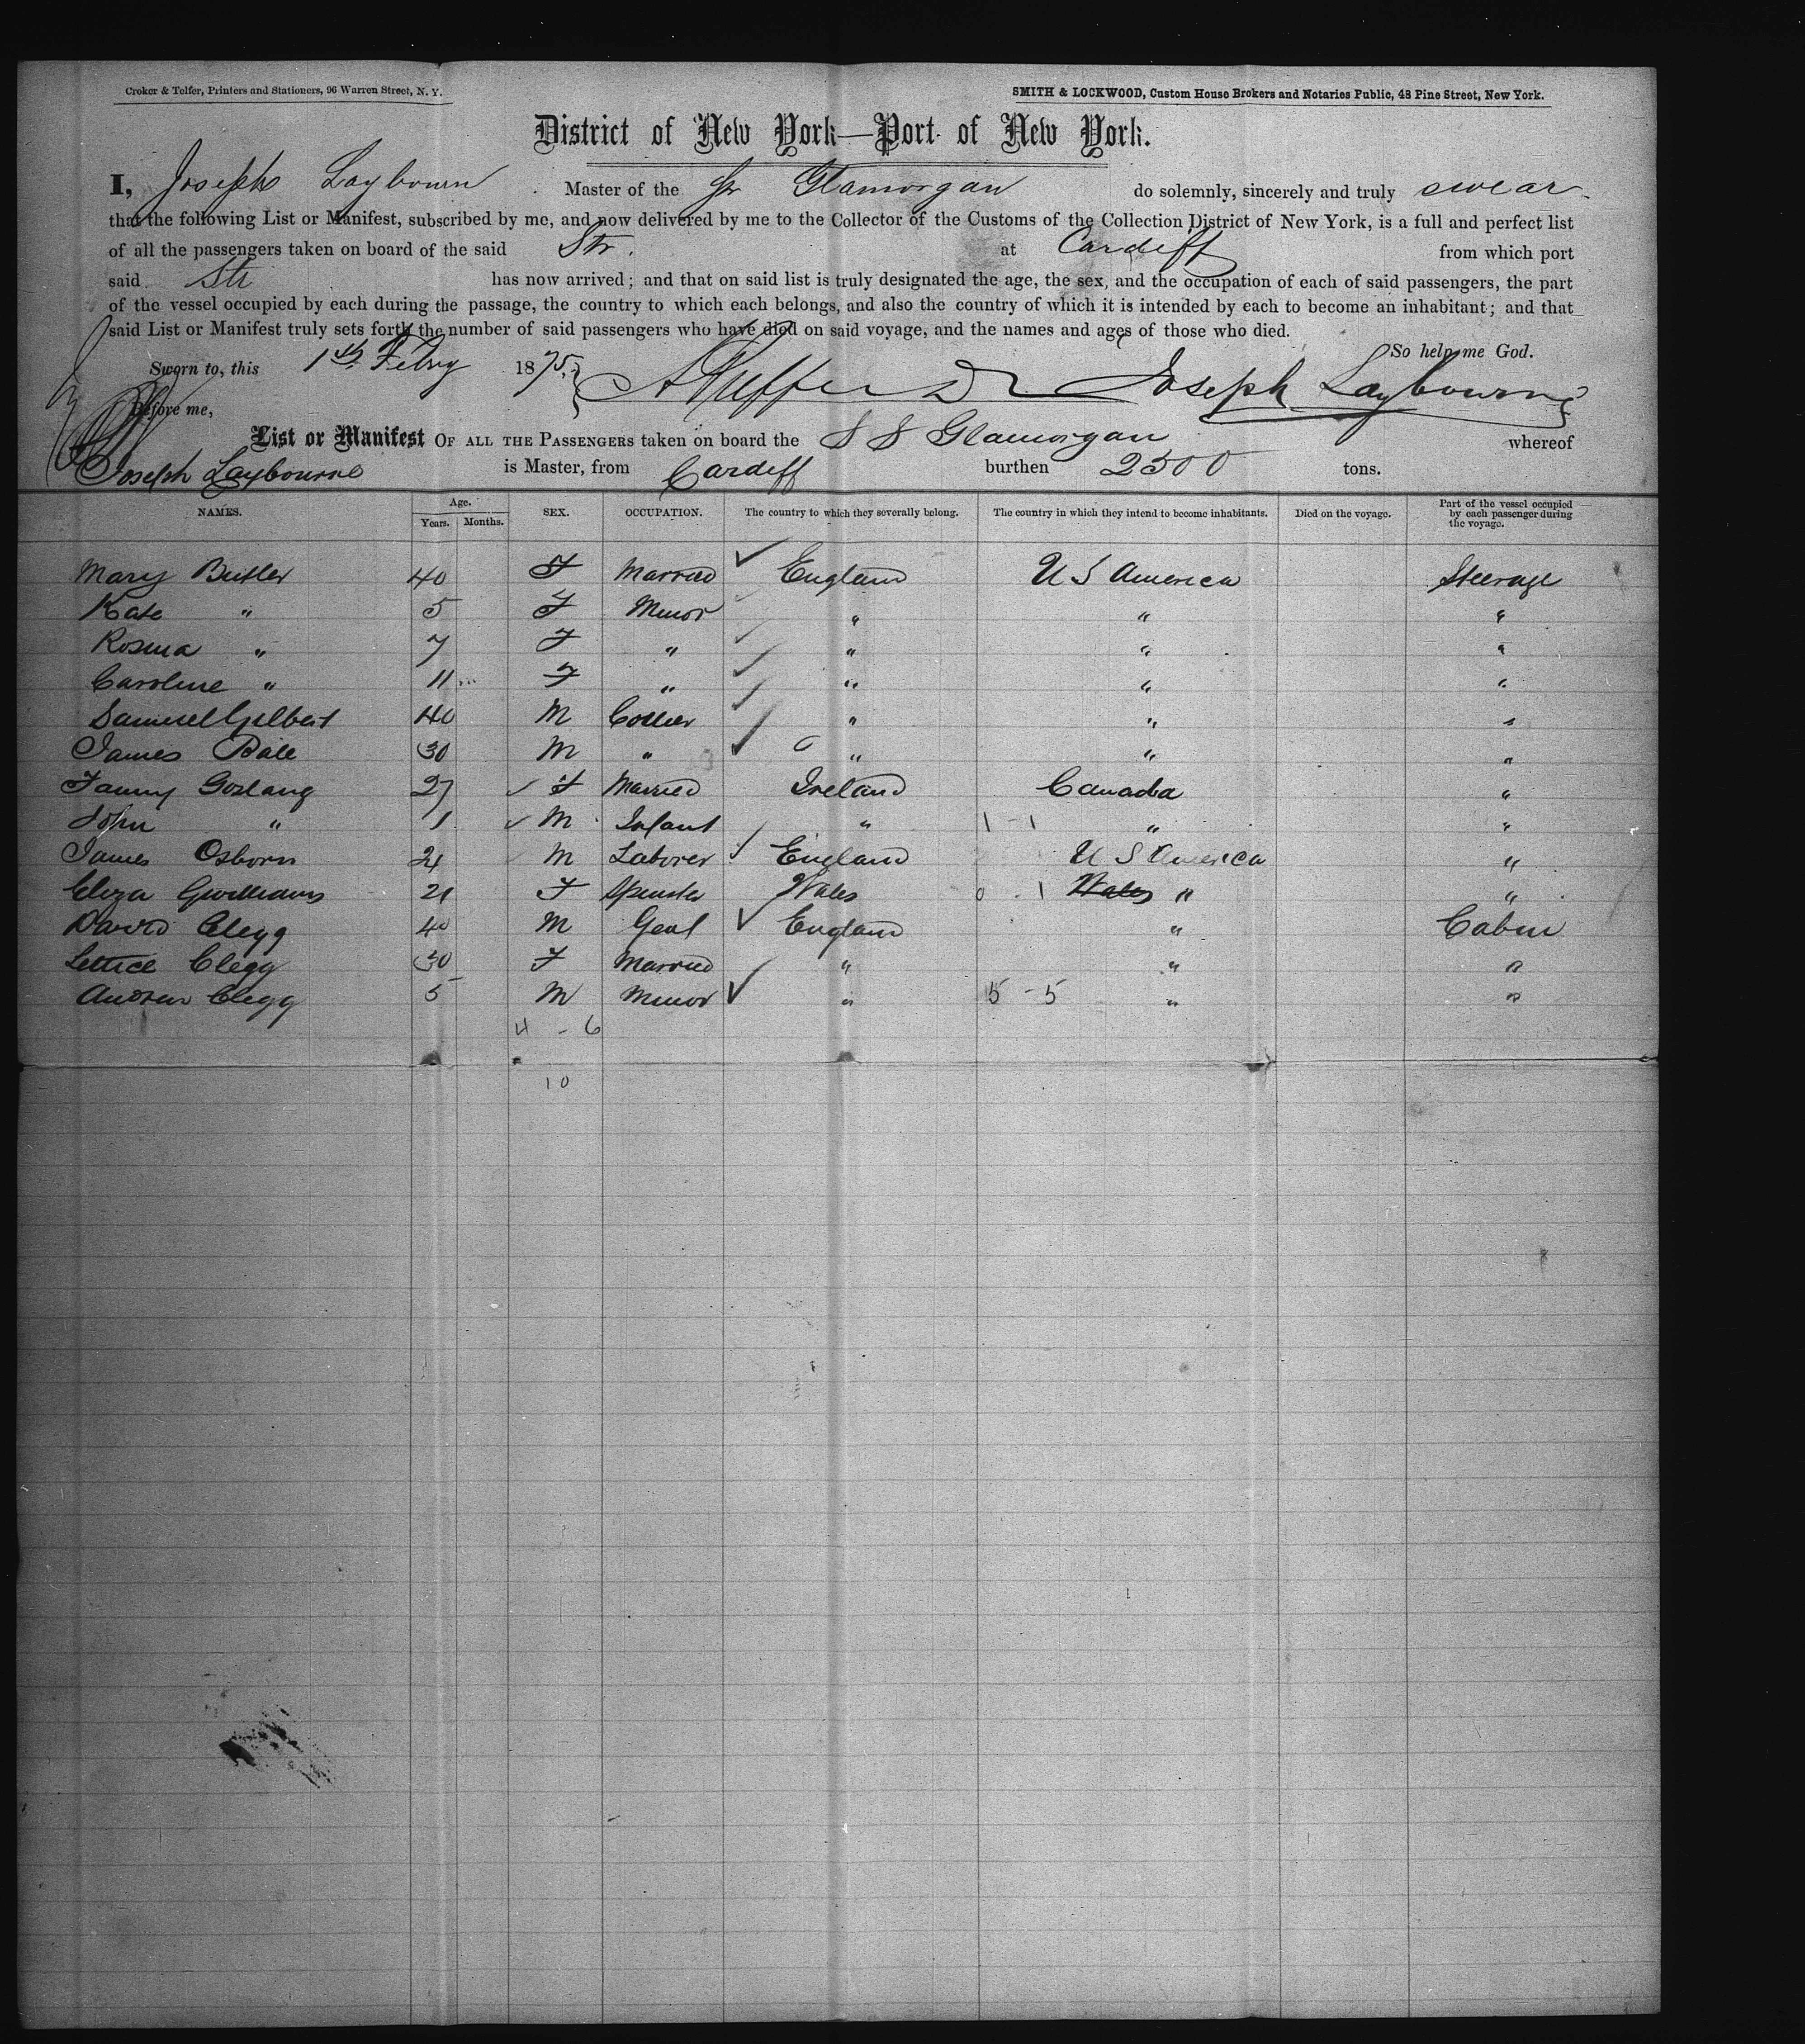 Croker & Telfer, Printers and Stationers, 96 Warren Street, N. Y.
SMITH & LOCKWOOD, Custom House Brokers and Notaries Public, 48 Pine Street, New York.
District of New York—Port of New York.
I, Joseph Laybourn Master of the Str Glamorgan do solemnly, sincerely and truly swear
that the following List or Manifest, subscribed by me, and now delivered by me to the Collector of the Customs of the Collection District of New York, is a full and perfect list
of all the passengers taken on board of the said Str. at Cardiff from which port
said Str has now arrived; and that on said list is truly designated the age, the sex, and the occupation of each of said passengers, the part
of the vessel occupied by each during the passage, the country to which each belongs, and also the country of which it is intended by each to become an inhabitant; and that
said List or Manifest truly sets forth the number of said passengers who have died on said voyage, and the names and ages of those who died.
So help me God.
Sworn to, this 1st Febry 1875, Joseph Laybourne
Before me,
List or Manifest OF ALL THE PASSENGERS taken on board the S S Glamorgan whereof
Joseph Laybourne is Master, from Cardiff burthen 2500 tons.
NAMES. Age. Years. Months. SEX. OCCUPATION. The country to which they severally belong. The country in which they intend to become inhabitants. Died on the voyage. Part of the vessel occupied by each passenger during the voyage.
Mary Butler 40 F Married ✓ England U S America Steerage
Kate " 5 F Minor " " "
Rosina " 7 F " ✓ " " "
Caroline " 11 F " ✓ " " "
Samuel Gilbert 40 M Collier ✓ " " "
James Bale 30 M " ✓ " " "
Fanny Goslang 27 ✓ F Married Ireland Canada "
John " 1 ✓ M Infant " 1 - 1 " "
James Osborn 24 M Laborer ✓ England U S America "
Eliza Gwilliams 21 F Spinster Wales 0 - 1 Wales " "
David Clegg 40 M Gent ✓ England " Cabin
Lettice Clegg 30 F Married " " "
Andrew Clegg 5 M Minor ✓ " 5 - 5 " "
4 - 6
10